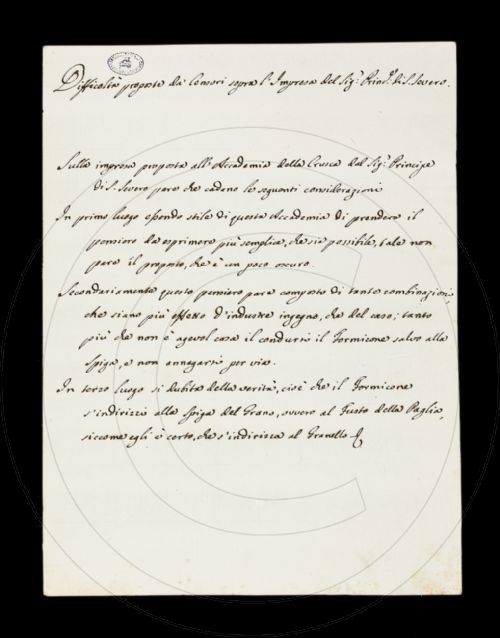 Difficoltà proposte da' Censori sopra l'Impresa del Sig.r Princ.e di S. Severo.
Sulla impresa proposta all'Accademia della Crusca dal Sig.r Principe
di S. Severo pare che cadano le seguenti considerazioni
In primo luogo essendo stile di questa Accademia di prendere il
pensiero da esprimere più semplice, che sia possibile, tale non
pare il proposto, che è un poco oscuro.
Secondariamente questo pensiero pare composto di tante combinazioni,
che siano più effetto d'industre ingegno, che del caso; tanto
più che non è agevol cosa il condursi il Formicone salvo alla
spiga, e non annegarsi per via.
In terzo luogo si dubita della verità, cioè che il Formicone
s'indirizzi alla spiga del Grano, ovvero al Fusto della Paglia,
siccome egli è certo, che s'indirizza al Granello